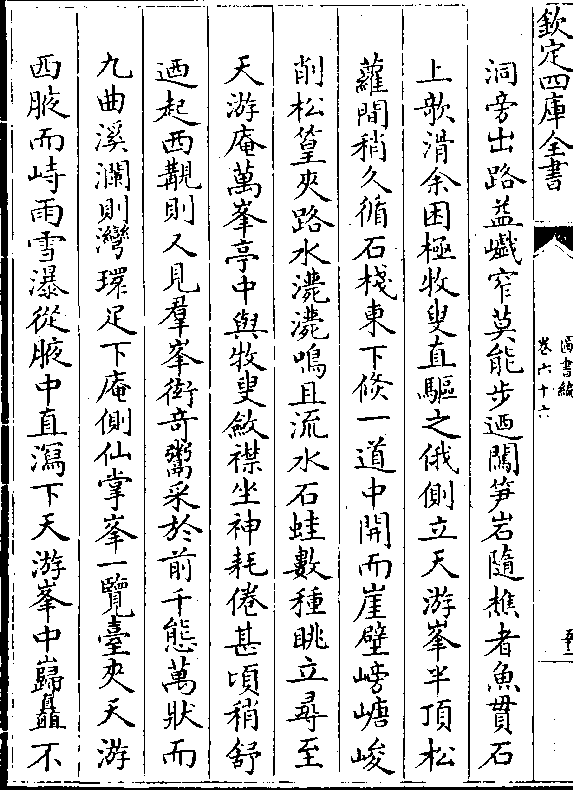 欽定四庫全書
圖書編
卷六十六
洞旁出路益巇窄莫能步迺闖笋岩隨樵者魚貫石
上歌滑余困極牧叟直驅之俄側立天游峯半頂松
蘿間稍久循石棧東下倐一道中開而崖壁嵭嵣峻
削松篁夾路水濔濔鳴且流水石蛙數種眺立尋至
天游庵萬峯亭中與牧叟斂襟坐神耗倦甚頃稍舒
迺起西觀則又見羣峯衒竒鬻采於前千態萬狀而
九曲溪瀾則灣環足下庵側仙掌峯一覽臺夾天游
西腋而峙雨雪瀑從腋中直瀉下天游峯中巋矗不